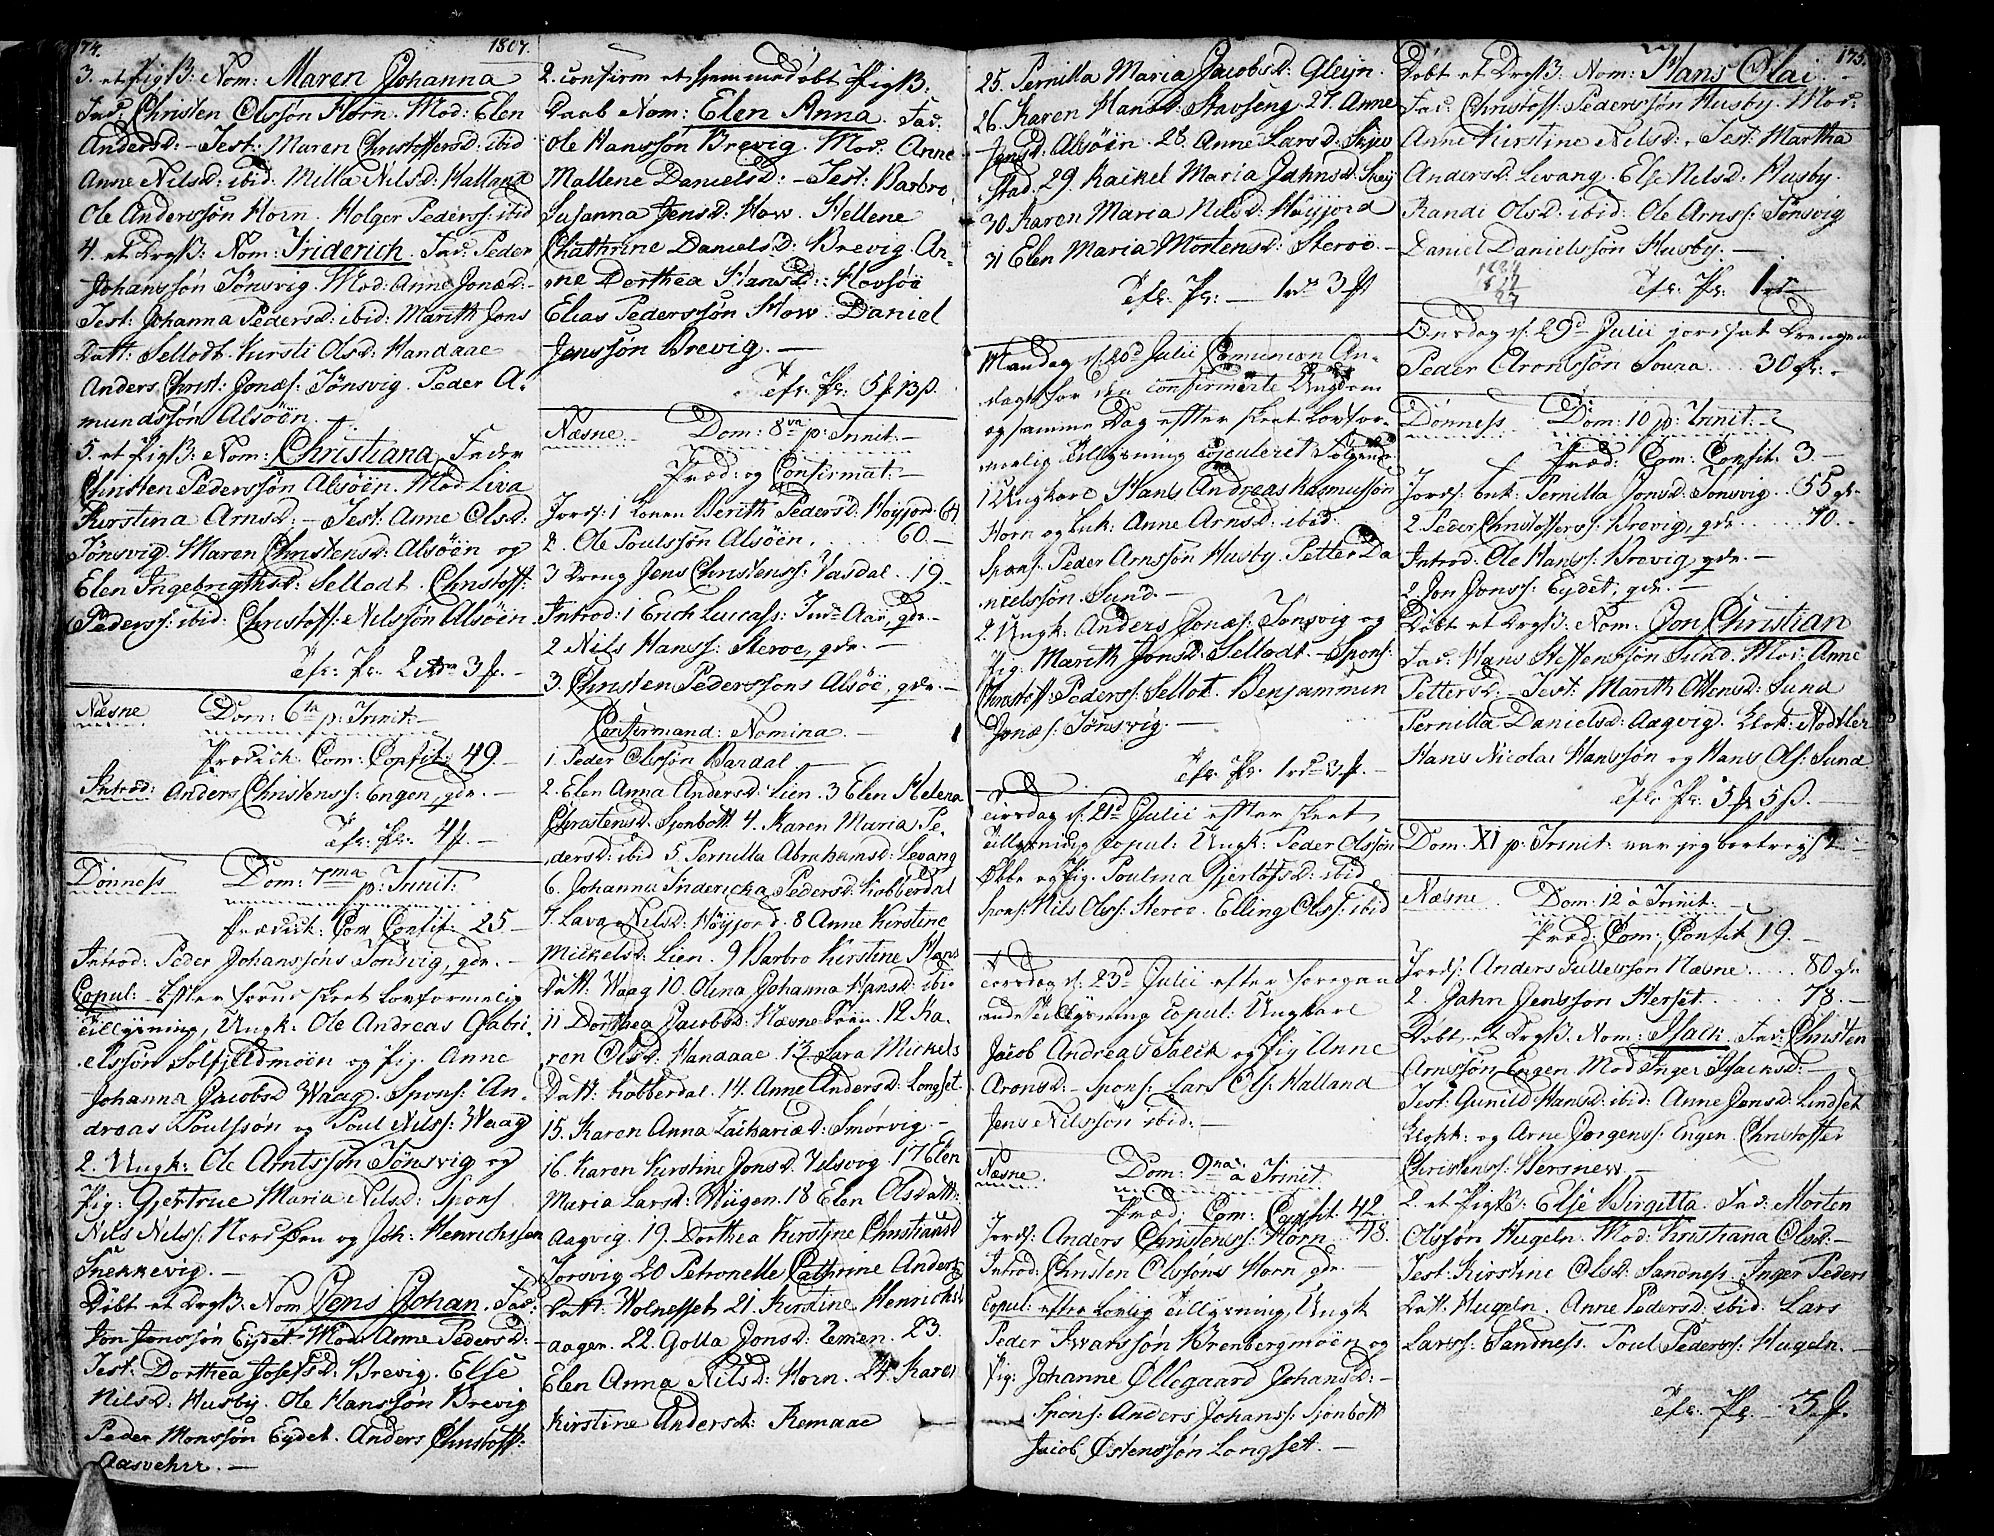 174. 1807.
3. et PigB: Nom: Maren Johanna
Fad: Christen Olssön Horn. Mod: Elen
Andersd: - Test: Maren Christoffersd: ibid
Anne Nilsd: ibid: Milla Nilsd: Halland
Ole Anderssön Horn. Holger Peders: ibid
4. et DrgB: Nom: Friderich. Fad: Peder
Johanssön Tönsvig. Mod: Anne Jonæd: -
Test: Johanna Pedersd: ibid: Marith Jons
Datt: Sellodt. Kirsti Olsd: Handaae
Anders Christ: Jonæs: Tönsvig. Peder A-
mundssön Alsöen.
5. et PigB: Nom: Christiana, Fader
Christen Pederssön Alsöen. Mod Liva
Kirstina Arnsd: - Test: Anne Olsd:
Tönsvig. Maren Christensd: Alsöen og
Elen Ingebrigthsd: Sellodt. Christoff:
Peders: ibid: Christoff: Nilssön Alsöen
Næsne Dom: 6ta p: Trinit: -
Prædik: Com: Confit: 49 -
Introd: Anders Christens: Engen, gdr. -
Dönness Dom: 7ma p: Trinit:
Prædik: Com Confit: 25 -
Introd: Peder Johanssöns Tönsvig, gdr. -
Copul: Efter forud skeet lovformelig
Tillysning, Ungk: Ole Andreas Gabri-
elssön Solfjeldmöen og Pig. Anne
Johanna Jacobsd Waag. Spons: An-
dreas Poulssön og Poul Nilss: Waag
2. Ungk: Ole Arntssön Tönsvig og
Pig: Gjertrue Maria Nilsd: Spons
Nils Nilss: og Joh: Henrichssen
Snekkevig. -
Döbt et DrgB: Nom Jens Johan. Fad:
Jon Jonssön Eydet Mod Anne Pedersd:
Test: Dorthea Josefsd: Brevig. Else
Nilsd: Husby. Ole Hanssön Brevig
Peder Monssön Eydet. Anders Christoff:
Aasvehrr. -
2. confirm et hjemmedöbt PigB:
Daab Nom: Elen Anna. Fad:
Ole Hanssön Brevig. Mod: Anne
Mallene Danielsd: - Test: Barbro
Susanna Jensd: How. Hellene
Chathrine Danielsd: Brevig. An-
ne Dorthea Hansd: Hovsöe
Elias Pederssön How. Daniel
Jenssön Brevig. -
Næsne Dom: 8va p: Trinit: -
Præd: og Confirmat: -
Jords: 1 Konen Berith Pedersd: Höyjord 64
2. Ole Poulssön Alsöen. 60. -
3 Dreng Jens Christens: Vasdal 19. -
Introd: 1 Erich Lucass: gdr. -
2 Nils Hanss: Steroe, gdr. -
3. Christen Pederssöns Alsöe, gdr. -
Confirmand: Nomina. -
1. Peder Olssön Bardal -
2. Elen Anna Andersd: Lien. 3 Elen Helena
Christensd: Sjonbott 4. Karen Maria Pe-
dersd: ibid 5. Pernilla Abrahamsd: Levang
6. Johanna Fridericka Pedersd: Kobberdal
7. Lava Nilsd: Höyjord. 8 Anne Kirstine
Mickelsd: Lien. 9 Barbro Kirstine Hans
Datt: Waag 10. Olina Johanna Hansd: ibid
11 Dorthea Jacobsd: Næsne 12. Ka-
ren Olsd: Handaae. 13 Sara Mickels
Datt: Kobberdal. 14. Anne Andersd: Longset
15. Karen Anna Zachariæd: Smörvig. -
16. Karen Kirstine Jonsd. Velsvog 17 Elen
Maria Larsd: Wügen. 18 Elen Olsdatt:
Aagvig. 19. Dorthea Kirstine Christiansd
Torsvig 20 Petronelle Cathrine Anders
Datt: Wolnesset. 21. Kirstine Henriksd
aagen. 22. Golla Jonsd: Remen. 23.
Elen Anna Nilsd: Horn. 24. Karen
Kirstine Andersd: Remaae
25. Pernilla Maria Jacobsd: Glejn.
26. Karen Hansd: Stavseng 27. Anne
Jensd: Alsöen. 28. Anne Larsd: Skjev
stad. 29. Rackel Maria Jahnsd: Skey
30 Karen Maria Nilsd: Höyjord
31 Elen Maria Mortensd: Steroe. -
Mandag d. 20d Julii Comunion An-
dagt for den confirmerte Ungdom
og samme Dag efter skeet Lovfor-
merlig Tillysning copuleret Fölgende
1 Ungkarl Hans Andreas Rasmussön
Horn og Enk: Anne Arnsd: ibid
Spons: Peder Arnssön Husby. Petter Da
nielssön Sund. -
2 Ungk: Anders Jonæs: Tönsvig og
Pig. Marith Jonsd: Sellodt - Spons:
Christoff: Peders: Sellot. Benjammen
Jonæs: Tönsvig. -
Tiirsdag d. 21d Julii efter skeet
Tillysning copul: Ungk: Peder Olssön
Økke og Pig. Poulina Gjertsd: ibid
Spons: Nils Olss: Steroe. Elling Olss: ibid
Torsdag d. 23d Julii efter foregaa
ende Tillysning copul: Ungkarl
Jacob Andreas Falck og Pig Anne
Aronsd: - Spons: Lars Ols: Halland
Jens Nilssön ibid. -
Næsne Dom: 9na à Trinit:
Præd: Com: Confit: 42.
Jords: Anders Christens: Horn 48.
Introd: Christen Olssöns Horn gdr. -
Copul: efter Lovlig Tillysning, Ungk
Peder Ivarssön Brenbergmöen og
Pig: Johanne Øllegaard Johansd: -
Spons: Anders Johanss: Sjonbott
Jacob Østenssön Longset. -
175.
Döbt et DrgB: Nom: Hans Olai. -
Fad: Christoff: Pederssön Husby. Mod:
Anne Kirstine Nilsd: - Test: Martha
Andersd Levang. Else Nilsd: Husby.
Randi Olsd: ibid: Ole Arns: Tönsvig
Daniel Danielssön Husby. -
Onsdag d. 29d Julii jordfæt Drengen
Peder Aronssön Souna 30 gl. -
Dönness Dom: 10 p: Trinit: -
Præd: Com: Confit. 3 -
Jords: Enk: Pernilla Jonsd: Tönsvig 55 gl.
2 Peder Christoffers: Brevig, gdr. 70. -
Introd: Ole Hans: Brevig, gdr. -
2 Jon Jons: Eydet, gdr. -
Döbt et DrgB: Nom: Jon Christian
Fad: Hans Steffenssön Sund. Mod: Anne
Pettersd - Test: Marith Ottensd: Sund
Pernilla Danielsd: Aagvig. Klok: Nodtler
Hans Nicolai Hanssön og Hans Ols: Sund
Dom: XI p: Trinit: var jeg bortreyst
Næsne Dom: 12 à Trinit: -
Præd: Com: Confit 19. -
Jords: Anders Tullessön Næsne 80 gl
2. Jahn Jenssön Herset 78. -
Döbt et DrgB: Nom: Isack. Fad: Christen
Arnssön Engen Mod Inger Isacksd: -
Test: Gunild Hansd: ibid: Anne Jensd: Lindset
Klokk: og Arne Jörgenss: Engen. Christoffer
Christenss: Hersnew. -
2. et PigB: Else Birgitta. Fad: Morten
Olssön Hugeln. Mod: Kristiana Olsd: -
Test: Kirstine Olsd: Sandness. Inger Peders
Datt: Hugeln. Anne Pedersd: ibid: Lars
Larss: Sandness. Poul Peders: Hugeln. -